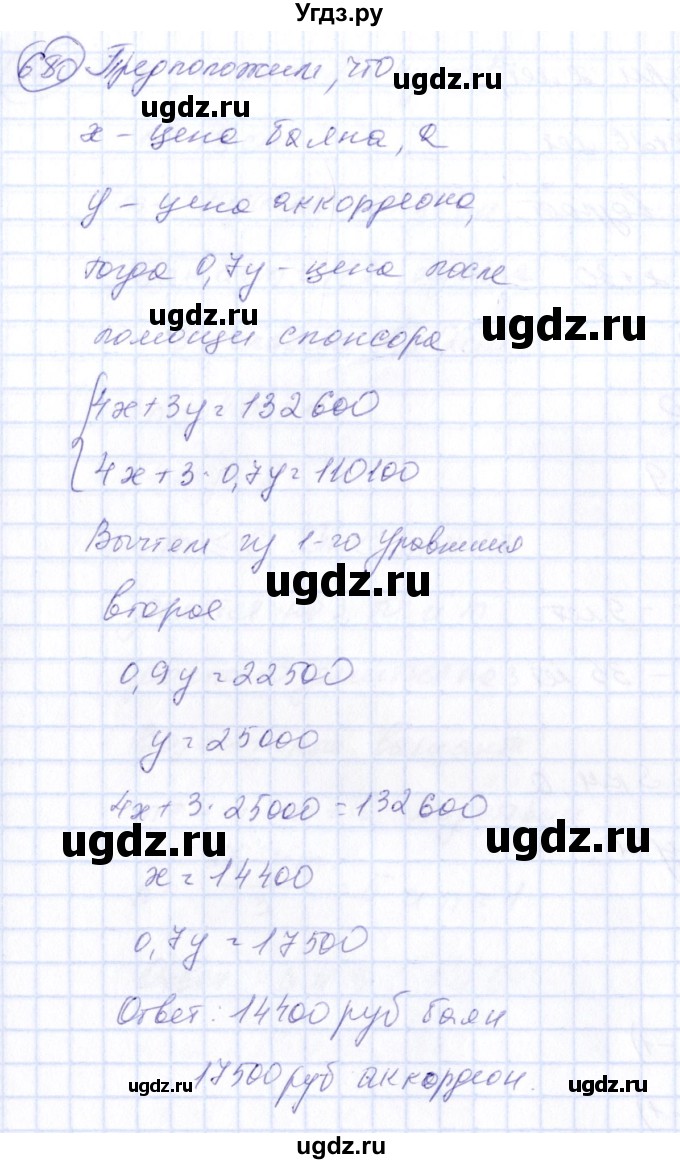 Угдз.ру
680 Предположим, что
x - цена баяна, а
y - цена аккордеона,
тогда 0,7y - цена после
помощи спонсора
ugdz.ru
ugdz.ru
4x + 3y = 132600
4x + 3 · 0,7y = 110100
Вычтем из 1-го уравнения
ugdz.ru
второе
0,9y = 22500
y = 25000
4x + 3 · 25000 = 132600
ugdz.ru
ugdz.ru
x = 14400
0,7y = 17500
Ответ: 14400 руб баян
17500 руб аккордеон.
ugdz.ru
ugdz.ru
ugdz.ru